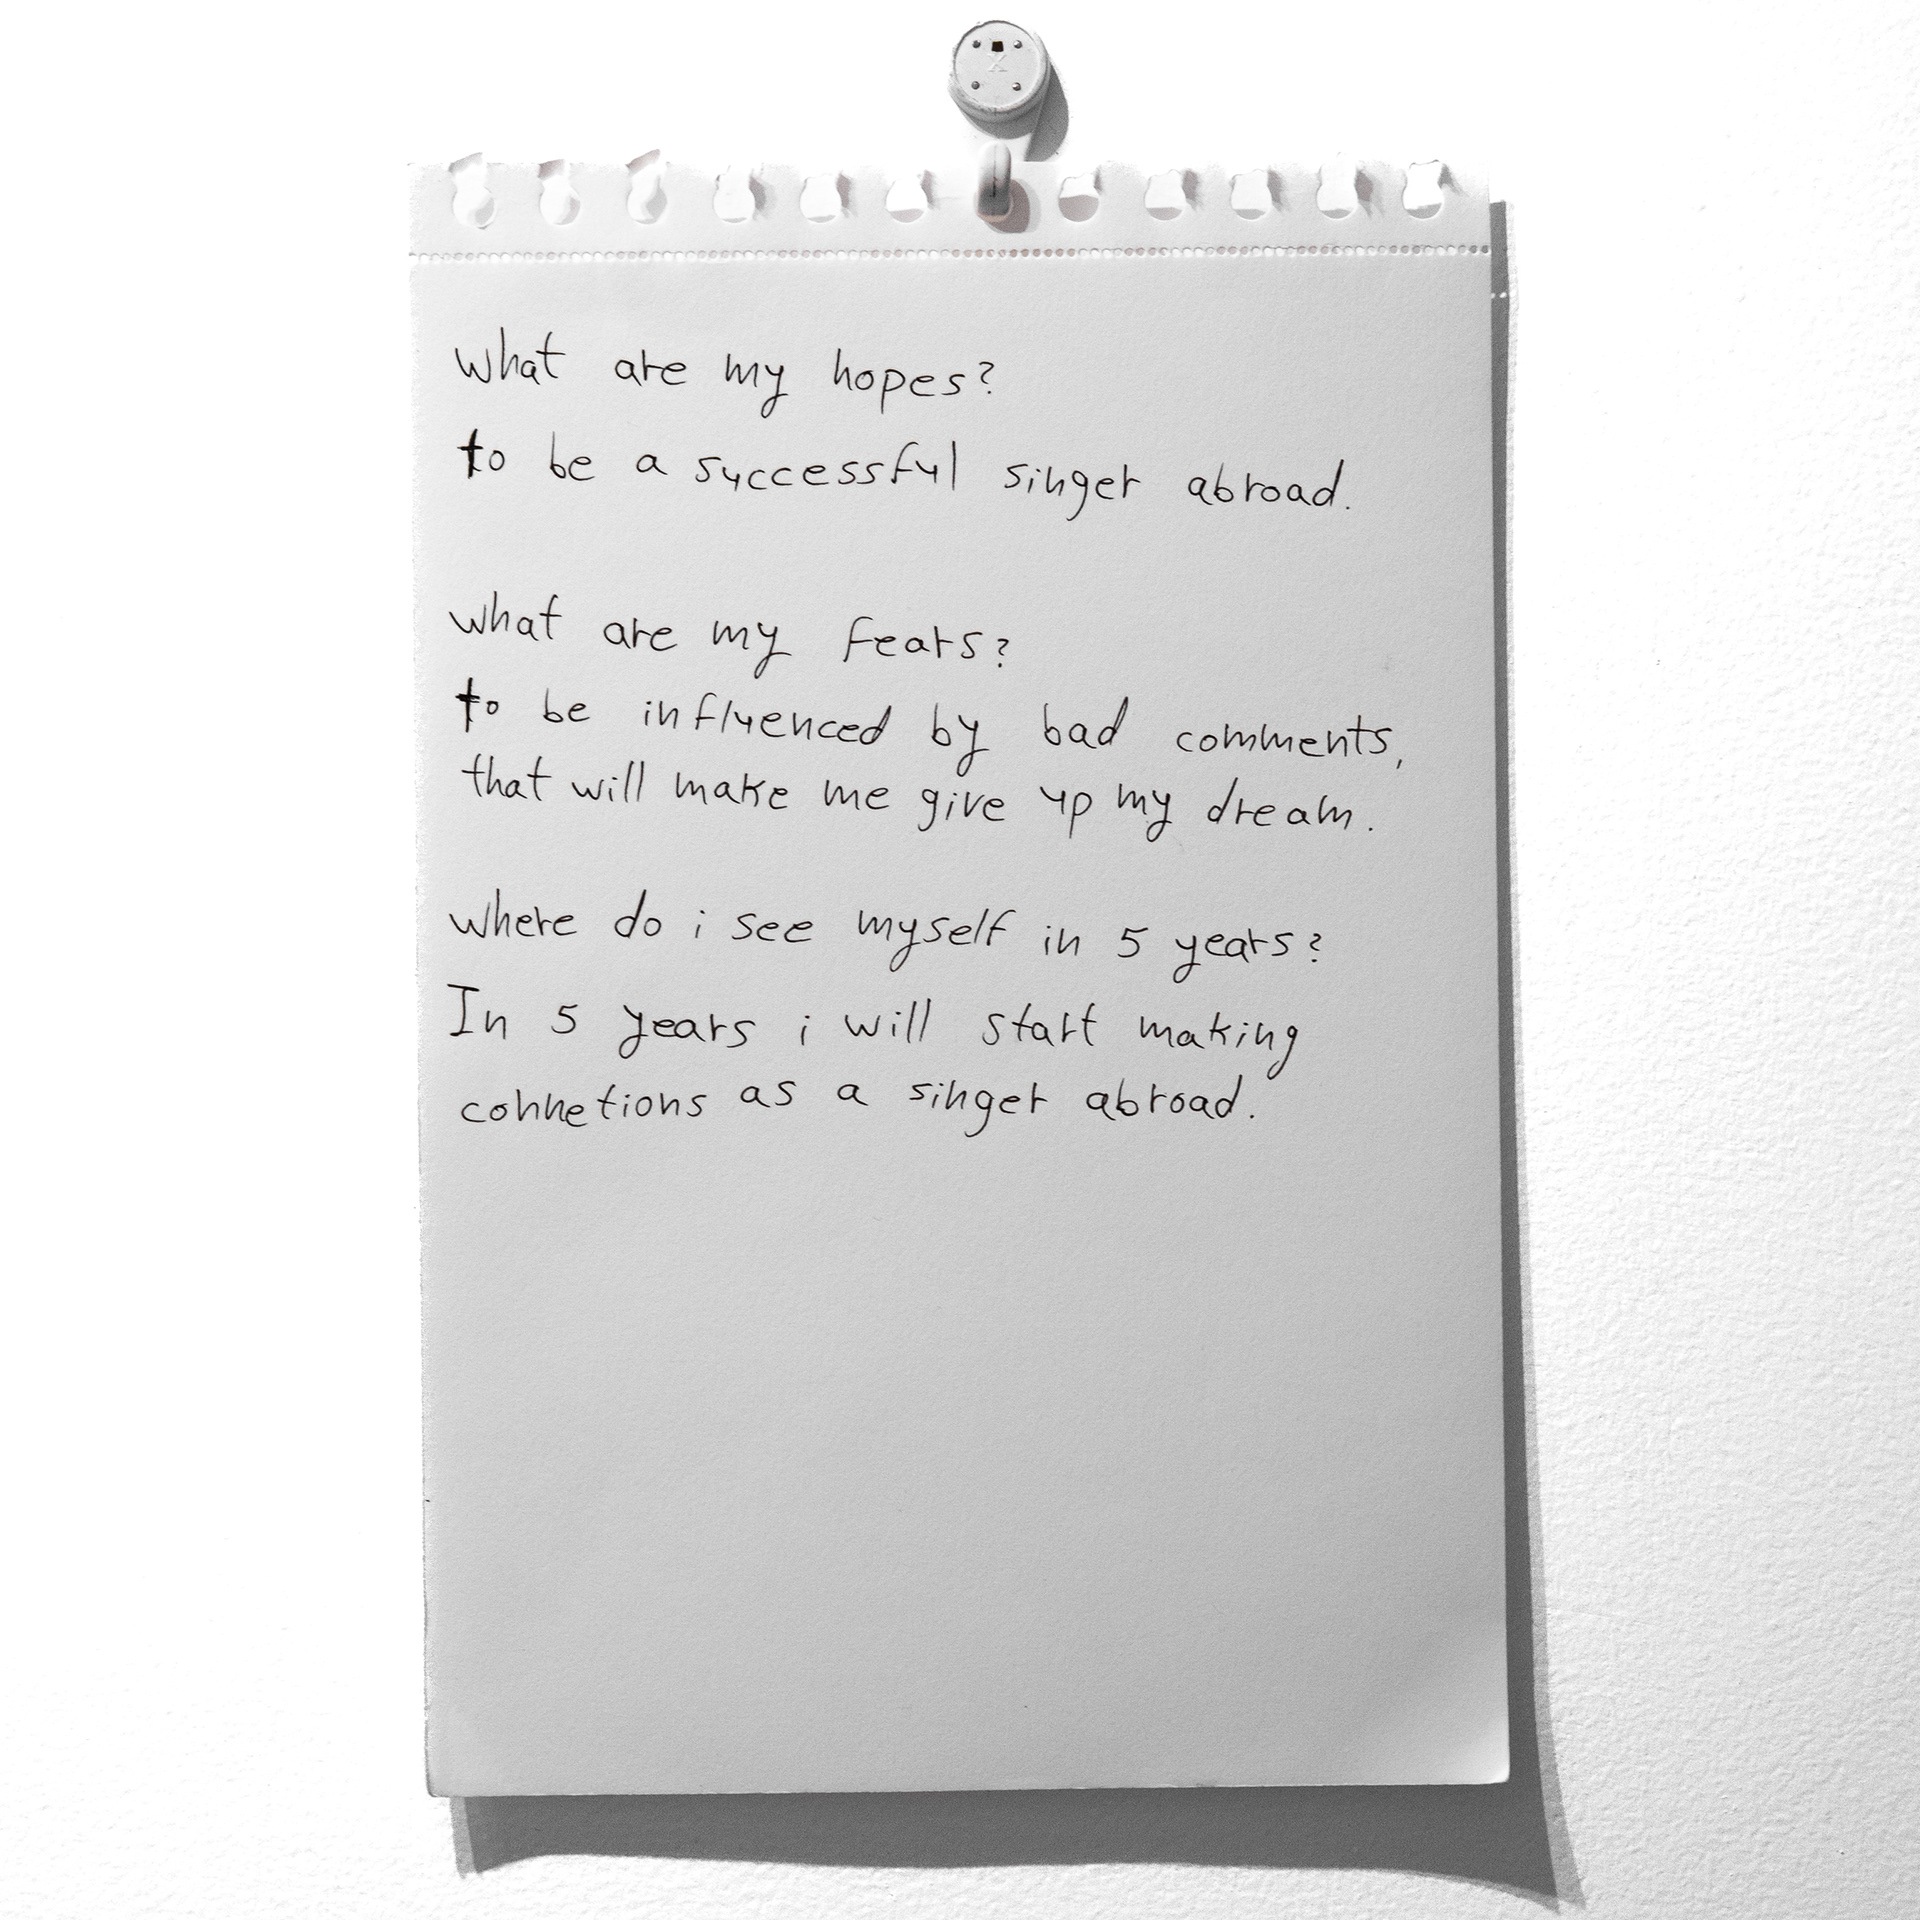 what are my hopes?
to be a successful singer abroad.
what are my fears?
to be influenced by bad comments,
that will make me give up my dream.
where do i see myself in 5 years?
In 5 years i will start making
connetions as a singer abroad.